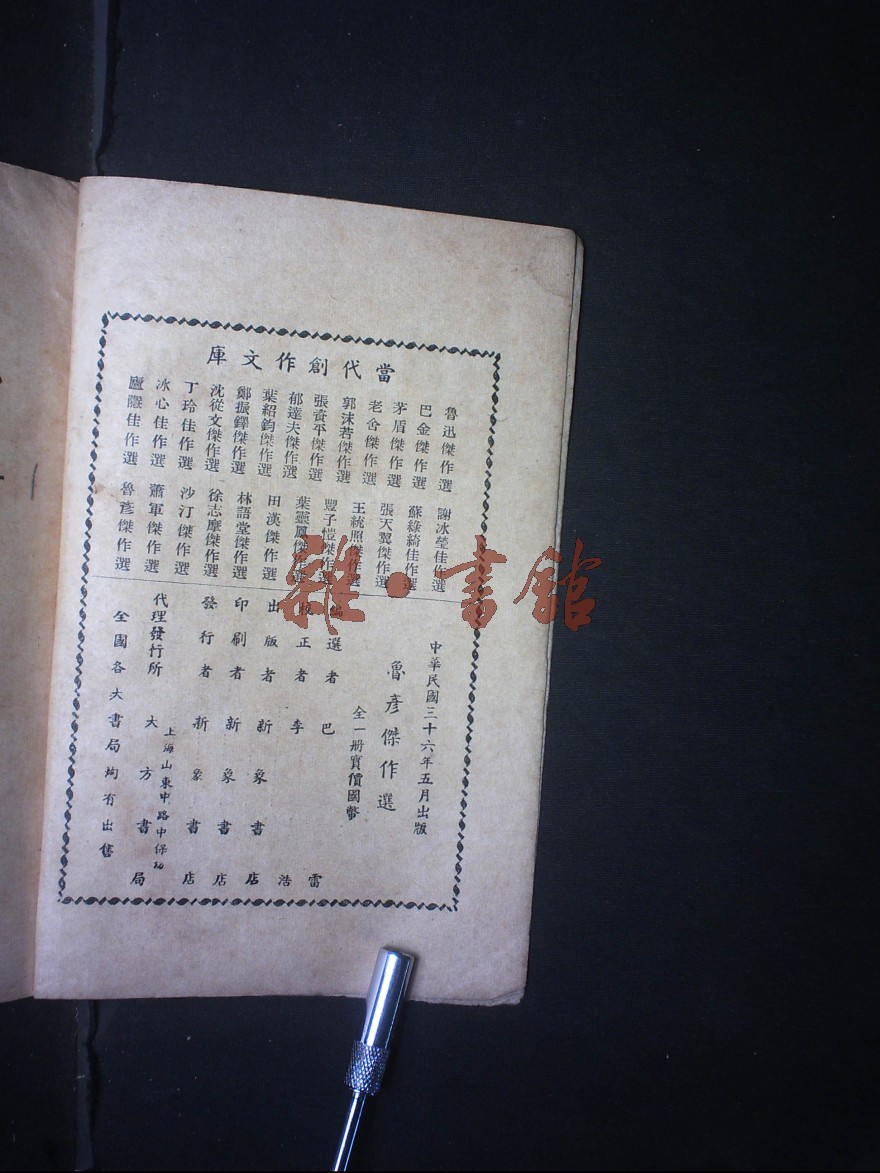 當代創作文庫
魯迅傑作選
巴金傑作選
茅盾傑作選
老舍傑作選
郭沫若傑作選
張資平傑作選
郁達夫傑作選
葉紹鈞傑作選
鄭振鐸傑作選
沈從文傑作選
丁玲佳作選
冰心佳作選
廬隱佳作選
謝冰瑩佳作選
蘇綠綺佳作選
張天翼傑作選
王統照傑作選
豐子愷傑作選
葉靈鳳傑作選
田漢傑作選
林語堂傑作選
徐志摩傑作選
沙汀傑作選
蕭軍傑作選
魯彥傑作選
中華民國三十六年五月出版
魯彥傑作選
全一冊實價國幣
編選者 巴雷
校正者 李浩
出版者 新象書店
印刷者 新象書店
發行者 新象書店
上海山東中路中保坊
代理發行所 大方書局
全國各大書局均有出售
雜·書館